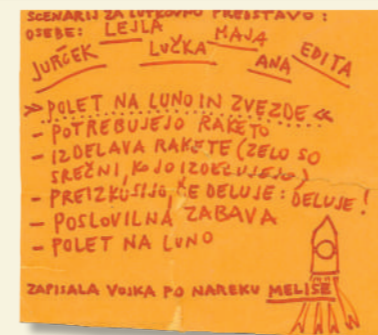 SCENARIJ ZA LUTKOVNO PREDSTAVO:
OSEBE: LEJLA MAJA
JURČEK LUČKA ANA EDITA
» POLET NA LUNO IN ZVEZDE «
- POTREBUJEJO RAKETO
- IZDELAVA RAKETE (ZELO SO
SREČNI, KO JO IZDELUJEJO)
- PREIZKUSIJO ČE DELUJE: DELUJE!
- POSLOVILNA ZABAVA
- POLET NA LUNO
ZAPISALA VOJKA PO NAREKU MELISE